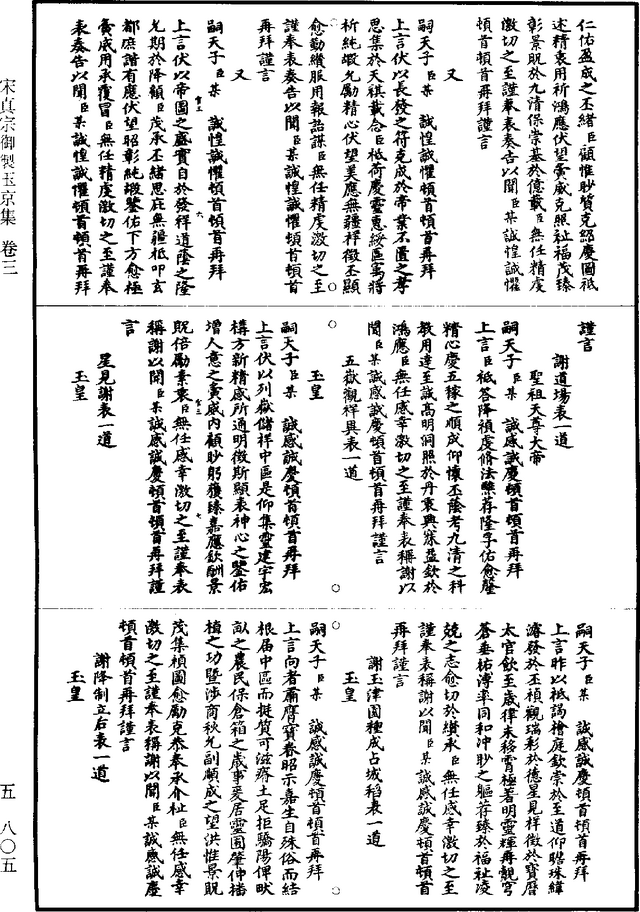 仁佑盈成之丕緒臣顧惟眇質克紹慶圖祗
述精衷用祈鴻應伏望寅威克照祉福茂臻
彰景貺於九清保崇基於億載臣無任精虔
激切之至謹奉表奏告以聞臣某誠惶誠懼
頓首頓首再拜謹言
又
嗣天子臣某　誠惶誠懼頓首頓首再拜
上言伏以長發之符克成於帝業不匱之孝
思集於天祺載念臣祗荷慶靈惠綏區寓將
祈純嘏允勵精心伏望美應無疆祥徵丕顯
愈勤纘服用報詒謀臣無任精虔激切之至
謹奉表奏告以聞臣某誠惶誠懼頓首頓首
再拜謹言
又
嗣天子臣某　誠惶誠懼頓首頓首再拜
上言伏以帝圖之盛實自於發祥道蔭之隆
允期於降顧臣茂承丕緒思庇無疆祗叩玄
都庶諧有應伏望昭彰純嘏鑒佑下方愈極
寅威用承覆冒臣無任精虔激切之至謹奉
表奏告以聞臣某誠惶誠懼頓首頓首再拜
謹言
謝道場表一道
聖祖天尊大帝
嗣天子臣某　誠感誠慶頓首頓首再拜
上言臣祗荅降禎虔脩法樂荐隆孚佑愈罄
精心慶五稼之順成仰懷丕蔭考九清之科
教用達至誠高明洞照於丹衷興寐益欽於
鴻應臣無任感幸激切之至謹奉表稱謝以
聞臣某誠感誠慶頓首頓首再拜謹言
五嶽觀祥異表一道
玉皇
嗣天子臣某　誠感誠慶頓首頓首再拜
上言伏以列嶽儲祥中區是仰集靈建宇宏
構方新精感所通明徵斯顯表神心之鑒佑
增人意之寅威內顧眇躬獲臻嘉應欽酬景
貺倍勵素衷臣無任感幸激切之至謹奉表
稱謝以聞臣某誠感誠慶頓首頓首再拜謹
言
星見謝表一道
玉皇
嗣天子臣某　誠感誠慶頓首頓首再拜
上言昨以祗謁檜庭欽崇於至道仰瞻珠緯
濬發於丕禎觀瑞彩於德星見祥徵於寶曆
太官飲至歲律未移宵極著明靈輝再覩穹
蒼垂祐溥率同和沖眇之軀荐臻於福祉凌
兢之志愈切於纘承臣無任感幸激切之至
謹奉表稱謝以聞臣某誠感誠慶頓首頓首
再拜謹言
謝玉津園種成占城稻表一道
玉皇
嗣天子臣某　誠感誠慶頓首頓首再拜
上言向者肅膺寶眷昭示嘉生自殊俗而結
根届中區而挺質可滋瘠土足拒驕陽俾畎
畝之農民保倉箱之歲事爰居靈囿肇伸播
植之功暨涉商秋允副順成之望洪惟景貺
茂集禎圖愈勵克恭奉承介祉臣無任感幸
激切之至謹奉表稱謝以聞臣某誠感誠慶
頓首頓首再拜謹言
謝降制立后表一道
玉皇
宋真宗御製玉京集　卷三
五　八〇五